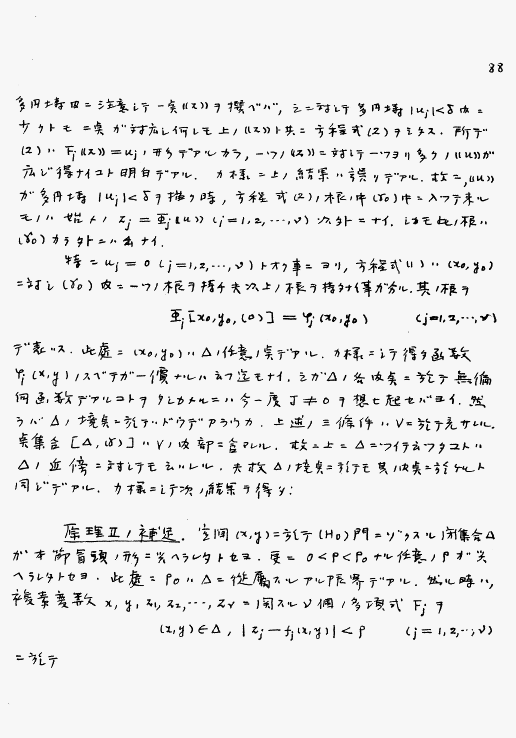 88
多円墻内ニ注意シテ一点((z))ヲ撰ベバ, 之ニ対シテ多円墻 |uj|<δ 内ニ
少クトモ一点ガ対応シ何レモ上ノ((z))ト共ニ方程式(2)ヲミタス. 所デ
(2)ハ Fj((z))=uj ノ形デアルカラ, 一ツノ((z))ニ対シテ一ツヨリ多クノ((u))ガ
応ジ得ナイコト明白デアル. カ様ニ上ノ結果ハ誤リデアル. 故ニ, ((u))
ガ多円墻 |uj|<δ ヲ描ク時, 方程式(2)ノ根ノ中(γ0)中ニ入ツテ来ル
モノハ始メノ zj = Φj((u)) (j=1,2,…,ν) 以外ニナイ. シカモ此ノ根ハ
(γ0)カラ外ニハ出ナイ.
特ニ uj = 0 (j=1,2,…,ν) トオク事ニヨリ, 方程式(1)ハ (x0,y0)
ニ対シ(γ0)内ニ一ツノ根ヲ持チ夫以上ノ根ヲ持チ得ナイ. 其ノ根ヲ
Φj[x0,y0,(0)] = φj(x0,y0) (j=1,2,…,ν)
デ表ハス. 此處ニ (x0,y0)ハΔノ任意ノ点デアル. カ様ニシテ得タ函数
φj(x,y)ノスベテガ一價ナルハ云フ迄モナイ. シガΔノ各内点ニ於テ無備
何函数デアルコトヲタシカメルニハ今一度 J≠0 ヲ想ヒ起セバヨイ. 然
ラバΔノ境点ニ於テハドウデアラウカ. 上述ノ三條件ハVニ於テ充サル.
点集合 [Δ,(γ)]ハVノ内部ニ含マレル. 故ニ上ニΔニツイテ云フタコトハ
Δノ近傍ニ対シテモ云ハレル. 夫故Δノ境点ニ於テモ其ノ内点ニ於ケルト
同ジデアル. カ様ニシテ次ノ結果ヲ得タ:
原理Ⅱノ補足. 空間(x,y)ニ於テ(H0)門ニゾクスル閉集合Δ
ガ本節冒頭ノ形ニ與ヘラレタトセヨ. 更ニ 0<ρ<ρ0 ナル任意ノρガ與
ヘラレタトセヨ. 此處ニρ0ハΔニ從屬スルアル限界デアル. 然ル時ハ,
複素変数 x, y, z1, z2, …, zν ニ関スルν個ノ多項式 Fj ヲ
(x,y)∈Δ, |zj−fj(x,y)|<ρ (j=1,2,…,ν)
ニ於テ